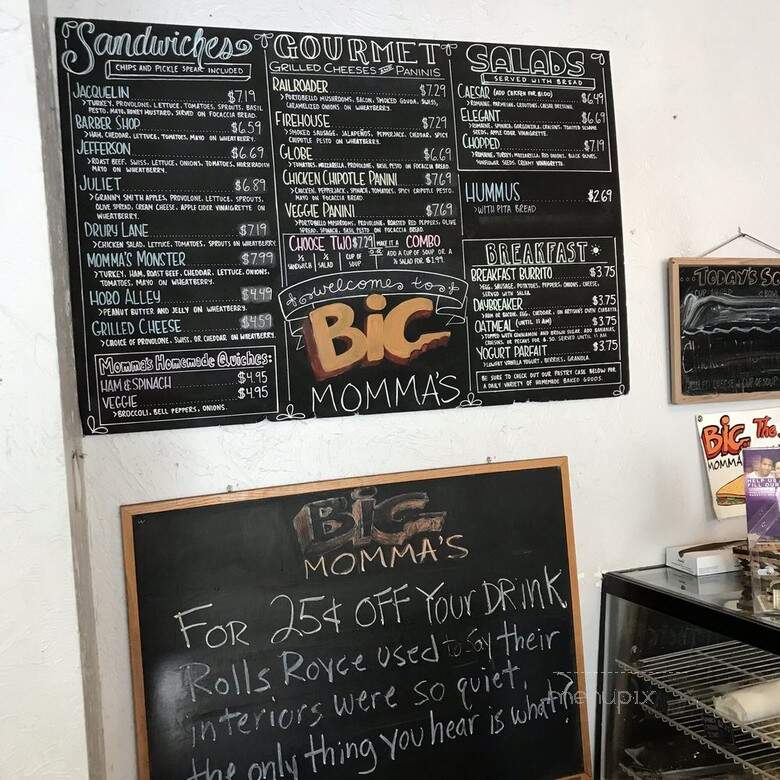 Sandwiches
CHIPS AND PICKLE SPEAR INCLUDED
JACQUELIN $7.19
>TURKEY, PROVOLONE, LETTUCE, TOMATOES, SPROUTS, BASIL
PESTO, MAYO, HONEY MUSTARD, SERVED ON FOCACCIA BREAD.
BARBER SHOP $6.59
>HAM, CHEDDAR, LETTUCE, TOMATOES, MAYO ON WHEATBERRY.
JEFFERSON $6.69
>ROAST BEEF, SWISS, LETTUCE, ONIONS, TOMATOES, HORSERADISH
MAYO ON WHEATBERRY.
JULIET $6.89
>GRANNY SMITH APPLES, PROVOLONE, LETTUCE, SPROUTS,
OLIVE SPREAD, CREAM CHEESE, APPLE CIDER VINAIGRETTE ON
WHEATBERRY.
DRURY LANE $7.19
>CHICKEN SALAD, LETTUCE, TOMATOES, SPROUTS ON WHEATBERRY
MOMMA'S MONSTER $7.99
>TURKEY, HAM, ROAST BEEF, CHEDDAR, LETTUCE, ONIONS,
TOMATOES, MAYO ON WHEATBERRY.
HOBO ALLEY $4.49
>PEANUT BUTTER AND JELLY ON WHEATBERRY.
GRILLED CHEESE $4.59
>CHOICE OF PROVOLONE, SWISS, OR CHEDDAR ON WHEATBERRY.
Momma's Homemade Quiches:
HAM & SPINACH $4.95
VEGGIE $4.95
>BROCCOLI, BELL PEPPERS, ONIONS.
GOURMET
GRILLED CHEESES AND PANINIS
RAILROADER $7.29
>PORTOBELLO MUSHROOMS, BACON, SMOKED GOUDA, SWISS,
CARAMELIZED ONIONS ON WHEATBERRY.
FIREHOUSE $7.29
>SMOKED SAUSAGE, JALAPEÑOS, PEPPERJACK, CHEDDAR, SPICY
CHIPOTLE PESTO ON WHEATBERRY.
GLOBE $6.69
>TOMATOES, MOZZARELLA, PROVOLONE, BASIL PESTO ON FOCACCIA BREAD.
CHICKEN CHIPOTLE PANINI $7.69
>CHICKEN, PEPPERJACK, SPINACH, TOMATOES, SPICY CHIPOTLE PESTO,
MAYO ON FOCACCIA BREAD.
VEGGIE PANINI $7.69
>PORTOBELLO MUSHROOMS, PROVOLONE, ROASTED RED PEPPERS, OLIVE
SPREAD, SPINACH, BASIL PESTO ON FOCACCIA BREAD.
CHOOSE TWO $7.29 MAKE IT A COMBO
½ SANDWICH ½ SALAD CUP OF SOUP
ADD A CUP OF SOUP OR A
½ SALAD FOR $1.99.
welcome to
BiG
MOMMA'S
SALADS
SERVED WITH BREAD
CAESAR (ADD CHICKEN FOR $1.00) $6.49
>ROMAINE, PARMESAN, CROUTONS, CAESAR DRESSING.
ELEGANT $6.69
>ROMAINE, SPINACH, GORGONZOLA, CRAISINS, TOASTED SESAME
SEEDS, APPLE CIDER VINAIGRETTE.
CHOPPED $7.19
>ROMAINE, TURKEY, MOZZARELLA, RED ONIONS, BLACK OLIVES,
SUNFLOWER SEEDS, CREAMY VINAIGRETTE.
HUMMUS $2.69
>WITH PITA BREAD
BREAKFAST
BREAKFAST BURRITO $3.75
>EGG, SAUSAGE, POTATOES, PEPPERS, ONIONS, CHEESE,
SERVED WITH SALSA.
DAYBREAKER $3.75
>HAM OR BACON, EGG, CHEDDAR, ON ARTISAN'S OVEN CIABATTA.
OATMEAL (UNTIL 11 AM) $3.75
>TOPPED WITH CINNAMON AND BROWN SUGAR. ADD BANANAS,
CRAISINS, OR PECANS FOR $.50. SERVED UNTIL 11 AM.
YOGURT PARFAIT $3.75
>LOWFAT VANILLA YOGURT, BERRIES, GRANOLA.
BE SURE TO CHECK OUT OUR PASTRY CASE BELOW FOR
A DAILY VARIETY OF HOMEMADE BAKED GOODS.
TODAY'S
BiG
MOMMA
The
HELP US
FILL OUR
BiG
MOMMA'S
FOR 25¢ OFF YOUR DRINK
Rolls Royce used to say their
interiors were so quiet,
the only thing you hear is what?
menupix